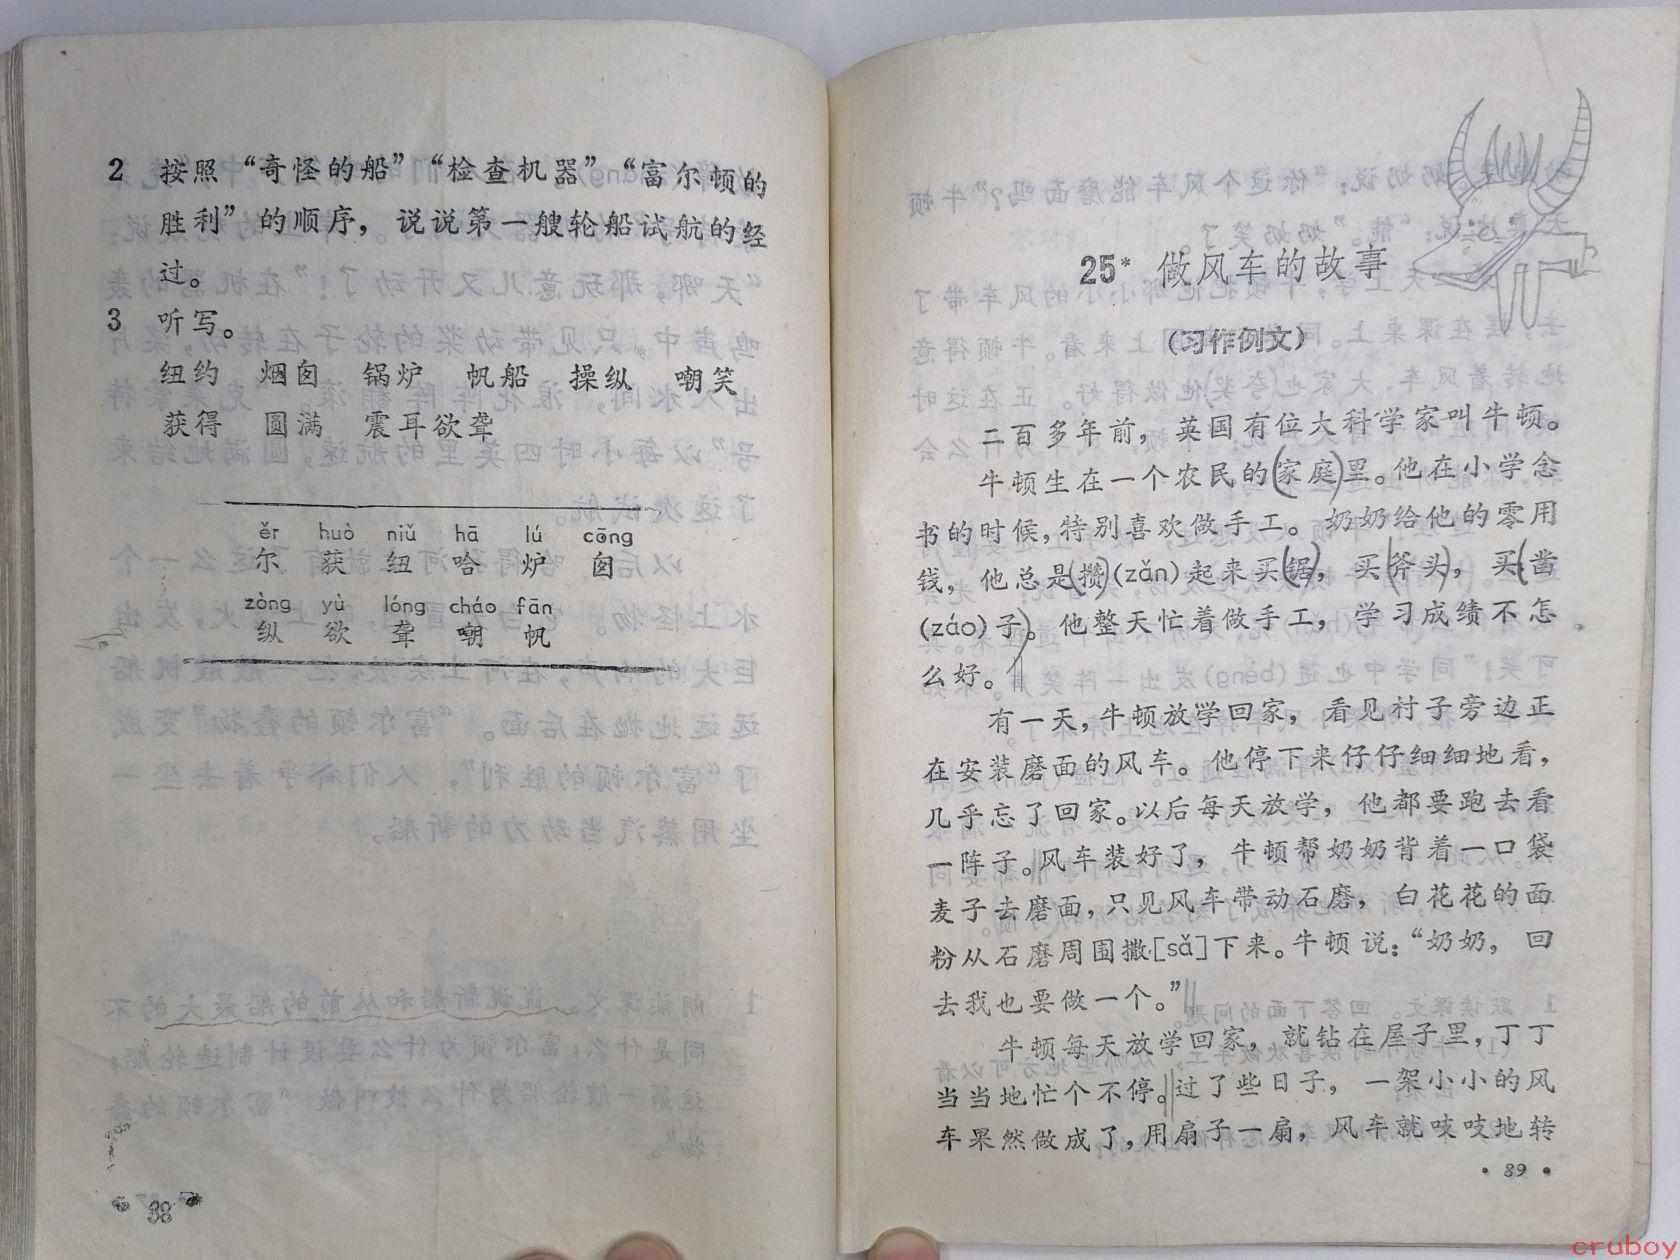 2 按照“奇怪的船”“检查机器”“富尔顿的
胜利”的顺序，说说第一艘轮船试航的经
过。
3 听写。
纽约 烟囱 锅炉 帆船 操纵 嘲笑
获得 圆满 震耳欲聋
ěr huò niǔ hā lú cōng
尔 获 纽 哈 炉 囱
zòng yù lóng cháo fān
纵 欲 聋 嘲 帆
·88·
25* 做风车的故事
（习作例文）
二百多年前，英国有位大科学家叫牛顿。
牛顿生在一个农民的(家庭)里。他在小学念
书的时候，特别喜欢做手工。奶奶给他的零用
钱，他总是(攒)(zǎn)起来买(锯)，买(斧头)，买(凿
(záo)子)。他整天忙着做手工，学习成绩不怎
么好。
有一天，牛顿放学回家，看见村子旁边正
在安装磨面的风车。他停下来仔仔细细地看，
几乎忘了回家。以后每天放学，他都要跑去看
一阵子。风车装好了，牛顿帮奶奶背着一口袋
麦子去磨面，只见风车带动石磨，白花花的面
粉从石磨周围撒[sǎ]下来。牛顿说：“奶奶，回
去我也要做一个。”
牛顿每天放学回家，就钻在屋子里，丁丁
当当地忙个不停。过了些日子，一架小小的风
车果然做成了，用扇子一扇，风车就吱吱地转
·89·
cruboy